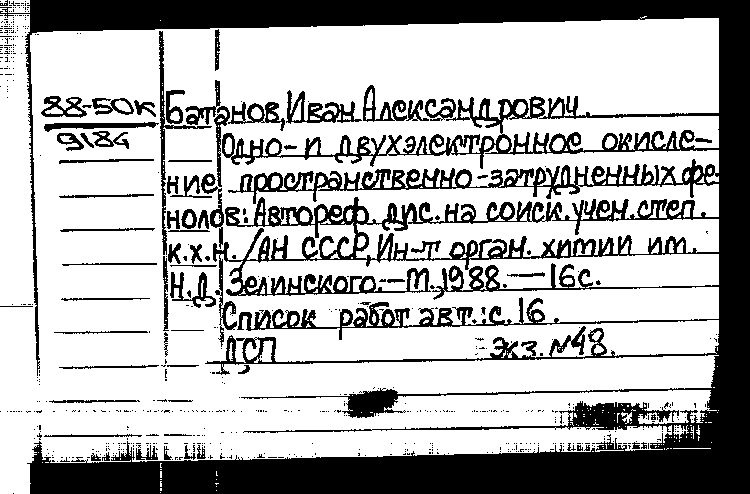 88-50к Батанов, Иван Александрович.
9184 Одно- и двухэлектронное окисле-
ние пространственно-затрудненных фе-
нолов: Автореф. дис. на соиск. учен. степ.
к.х.н. /АН СССР, Ин-т орган. химии им.
Н.Д. Зелинского. — М., 1988. — 16с.
Список работ авт.: с. 16.
ДСП Экз. №48.